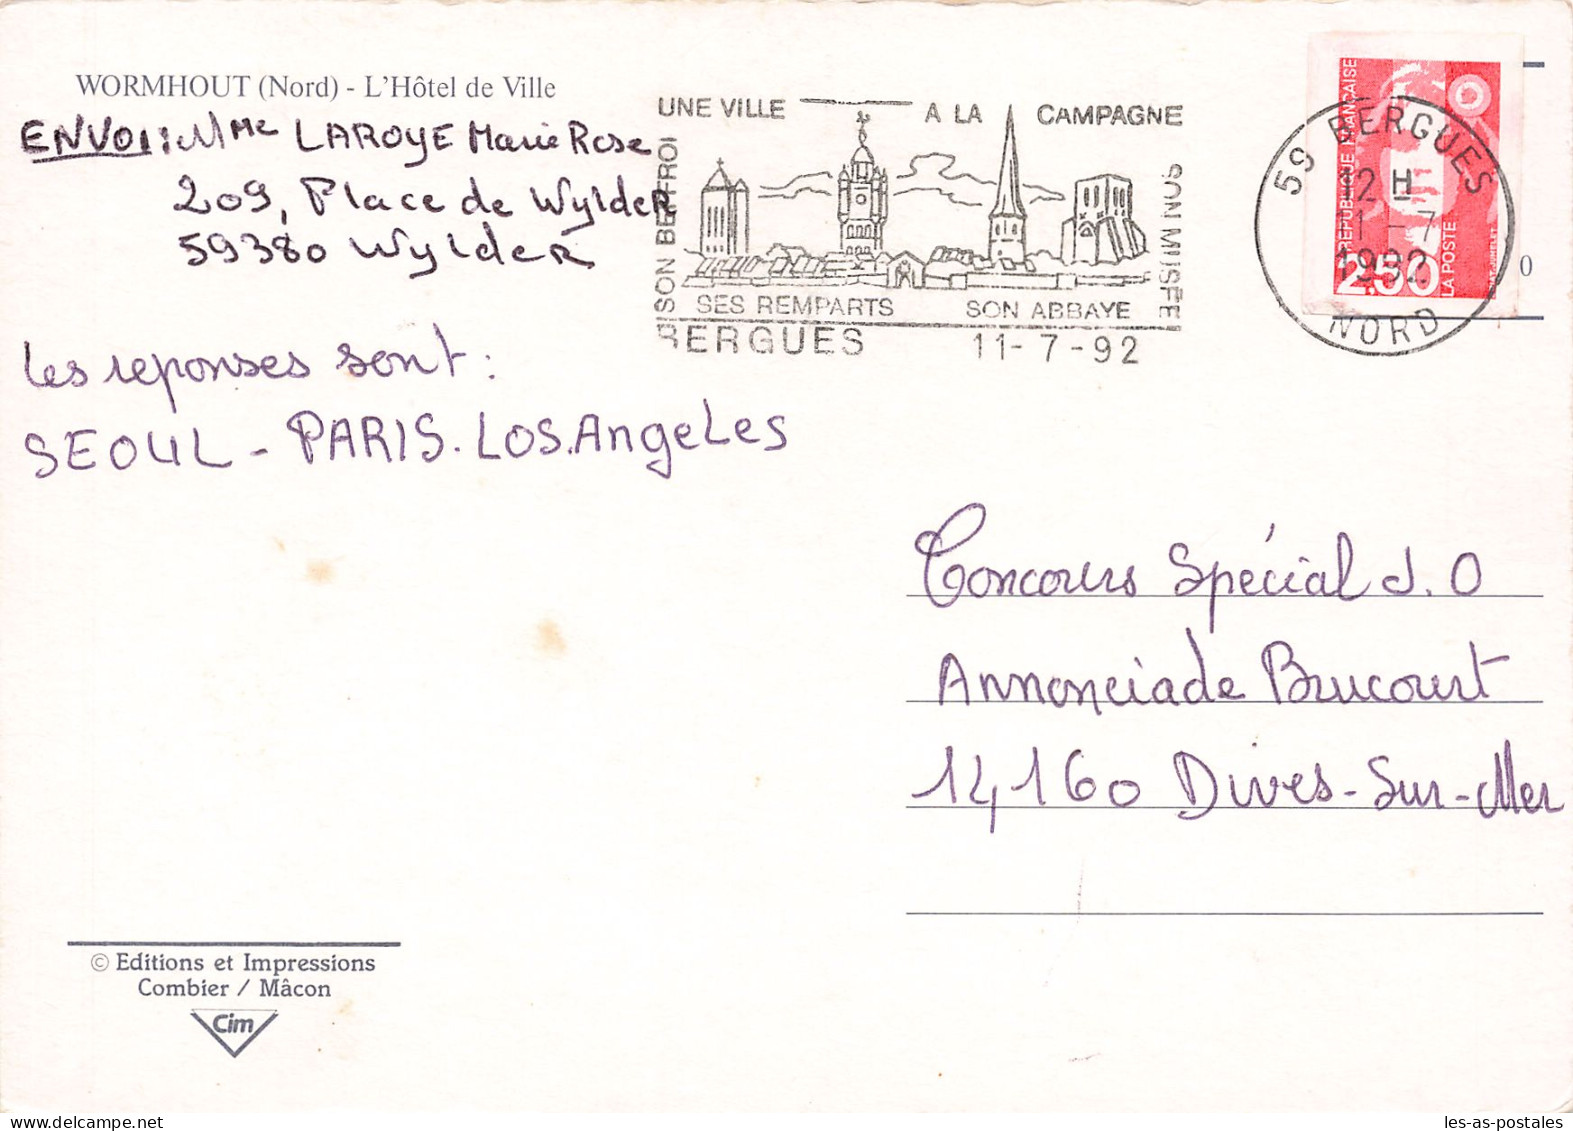 WORMHOUT (Nord) - L'Hôtel de Ville
ENVOI: Mme LAROYE Marie Rose
209, Place de Wylder
59380 Wylder
UNE VILLE A LA CAMPAGNE
SON BEFFROI
SON MUSEE
SES REMPARTS SON ABBAYE
BERGUES 11-7-92
REPUBLIQUE FRANÇAISE
2,50
LA POSTE
59 BERGUES
12 H
11-7
1992
NORD
0
Les reponses sont :
SEOUL - PARIS. LOS.AngeLes
Concours Spécial J.O
Annonciade Brucourt
14160 Dives-Sur-Mer
© Editions et Impressions
Combier / Mâcon
Cim
les-as-postales